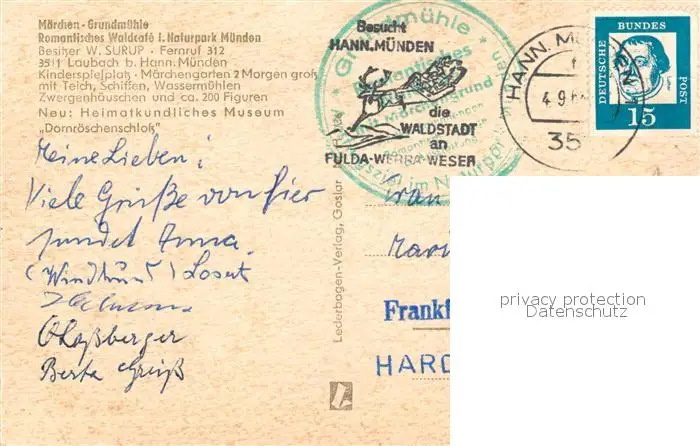 Märchen-Grundmühle
Romantisches Waldcafé i. Naturpark Münden
Besitzer W. SURUP · Fernruf 312
3511 Laubach b. Hann. Münden
Kinderspielplatz · Märchengarten 2 Morgen groß
mit Teich, Schiffen, Wassermühlen
Zwergenhäuschen und ca. 200 Figuren
Neu: Heimatkundliches Museum
„Dornröschenschloß"
Besucht
HANN. MÜNDEN
die
WALDSTADT
an
FULDA-WERRA-WESER
Grundmühle
Romantisches
im Naturpark
HANN. MÜNDEN
4.9.6
35
DEUTSCHE BUNDES POST
15
Meine Lieben!
Viele Grüße von hier
sendet Anna
(Windhund)
Berta
Lederbogen-Verlag, Goslar
Frau
Frankf
HARD
privacy protection
Datenschutz